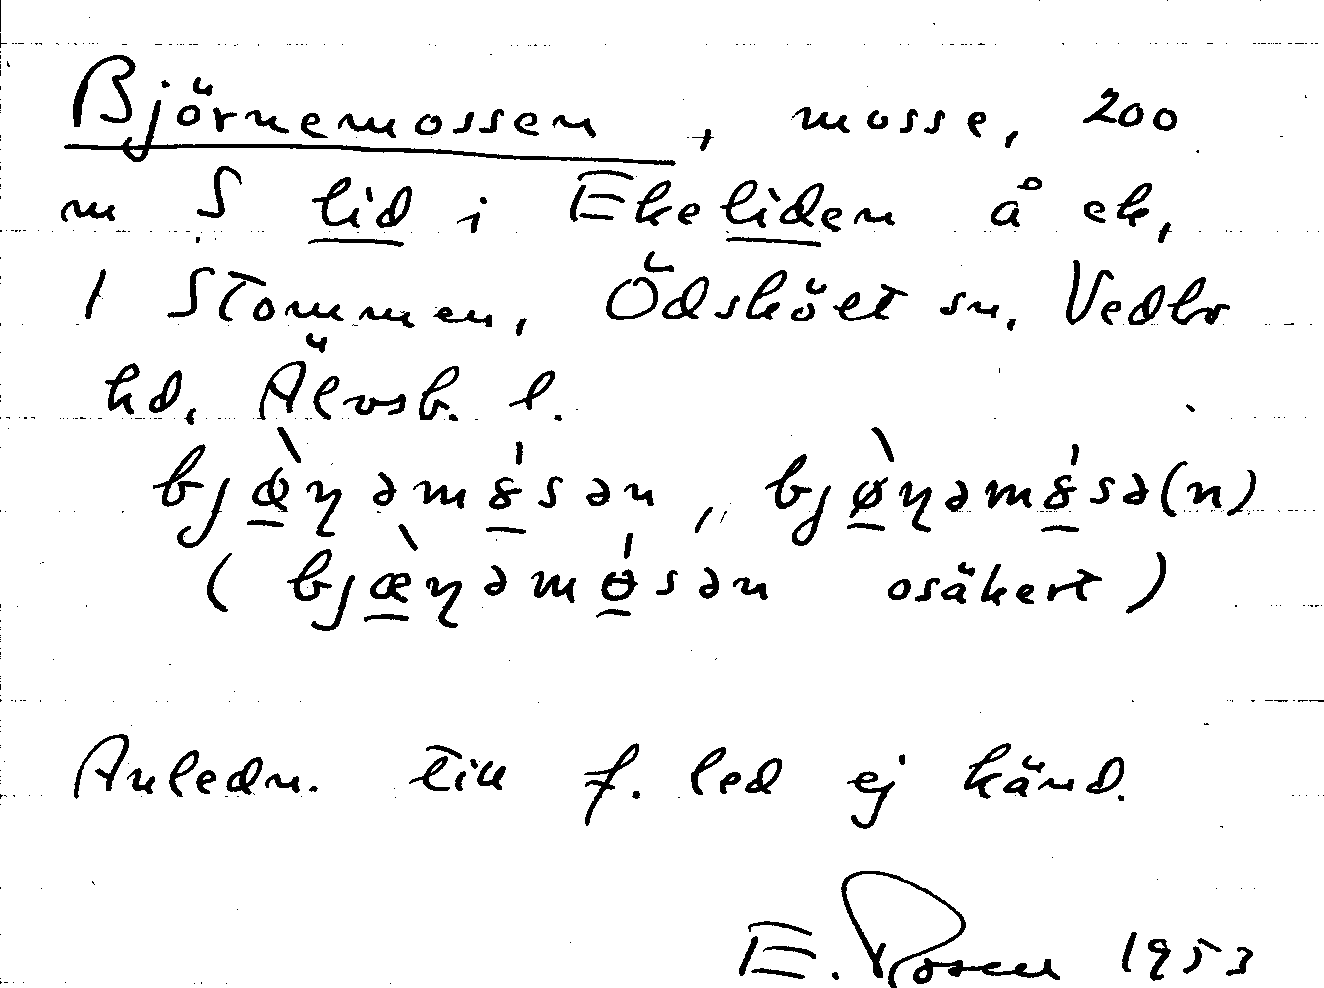 Björnemossen, mosse, 200
m S lid i Ekeliden å ek,
1 Stommen, Ödskölt sn, Vedbo
hd, Älvsb. l.
bjœ̀ɳəmɞ́sən, bjø̀ɳəmɞ́sə(n)
(bjæ̀ɳəmɵ́sən osäkert)
Anledn. till f. led ej känd.
E. Rosen 1953